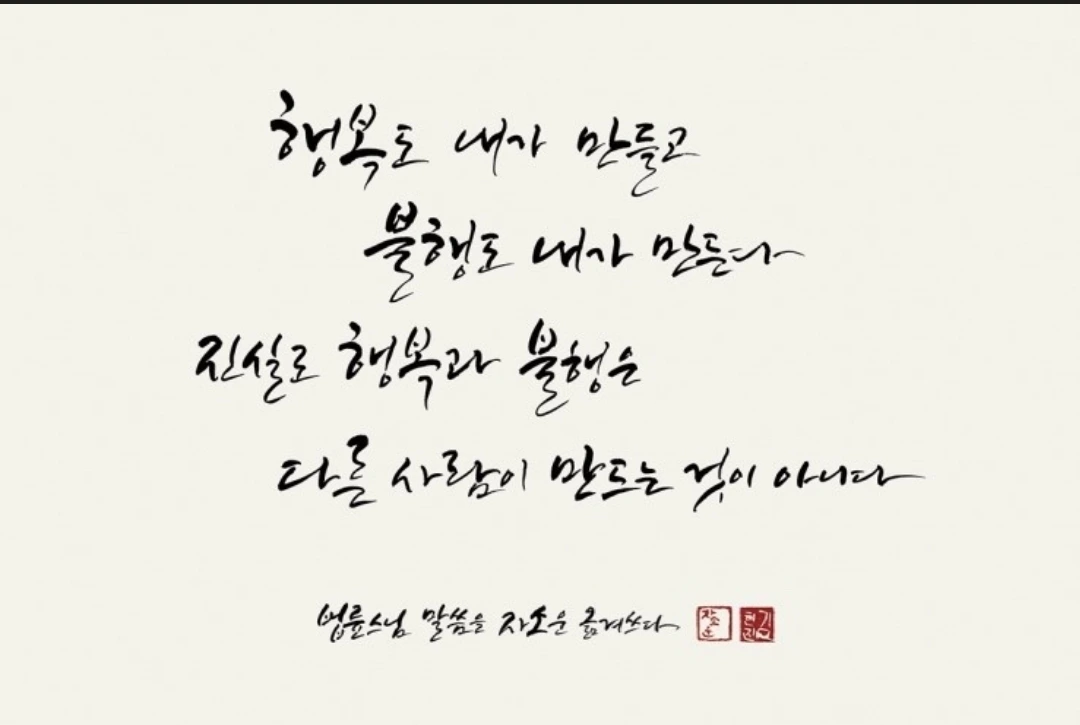 행복도 내가 만들고
불행도 내가 만든다
진실로 행복과 불행은
다른 사람이 만드는 것이 아니다
법륜스님 말씀을 자소운 옮겨쓰다